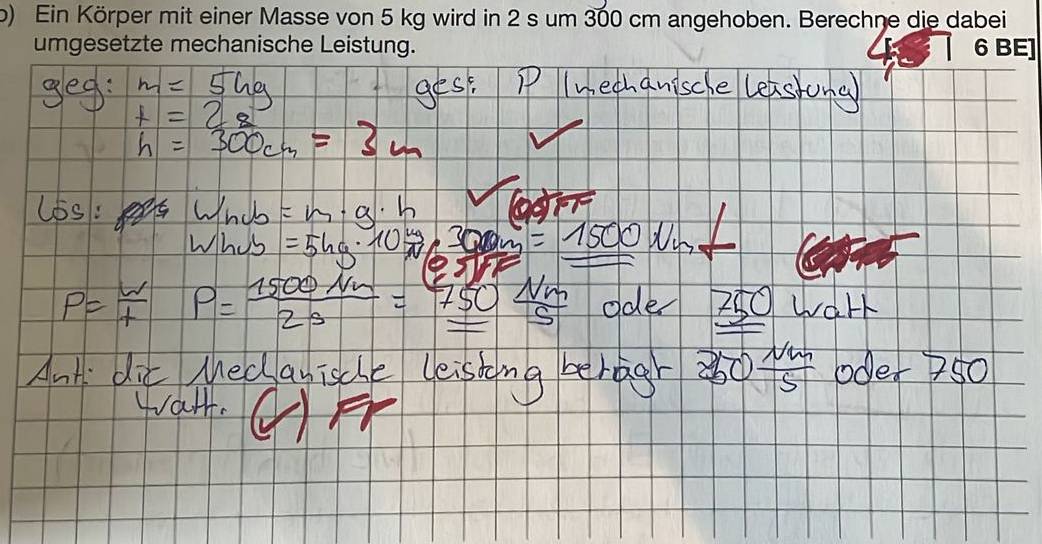 b) Ein Körper mit einer Masse von 5 kg wird in 2 s um 300 cm angehoben. Berechne die dabei
umgesetzte mechanische Leistung. 6 BE]
geg: m = 5kg ges: P (mechanische Leistung)
t = 2s
h = 300cm = 3m
Lös: Whub = m · g · h FF
Whub = 5kg · 10 · 300m = 1500 Nm f
FF
P = W/t P = 1500 Nm/2s = 750 Nm/s oder 750 Watt
Ant: die Mechanische leistung beträgt 750 Nm/s oder 750
Watt. (✓) FF